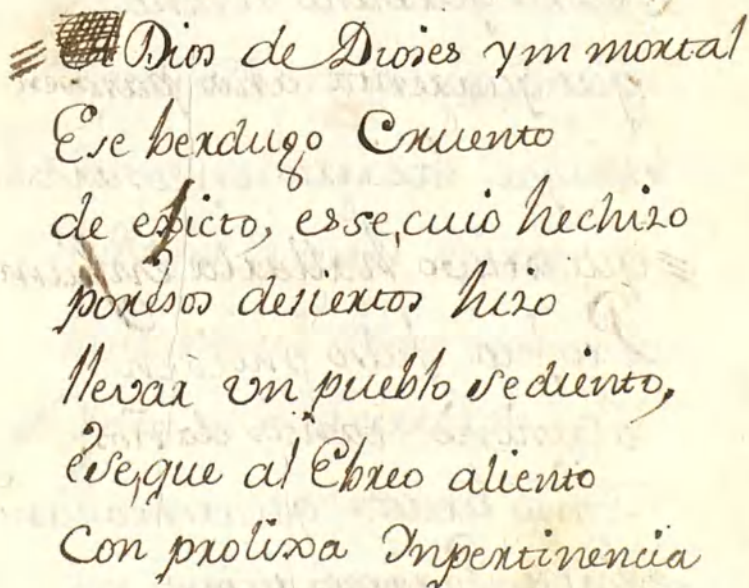 = Dios de Dioses ynmortal
Ese berdugo Cruento
de egicto, esse, cuio hechizo
poresos desiertos hizo
llevar vn pueblo sediento,
ese, que al Ebreo aliento
Con prolixa Inpertinencia